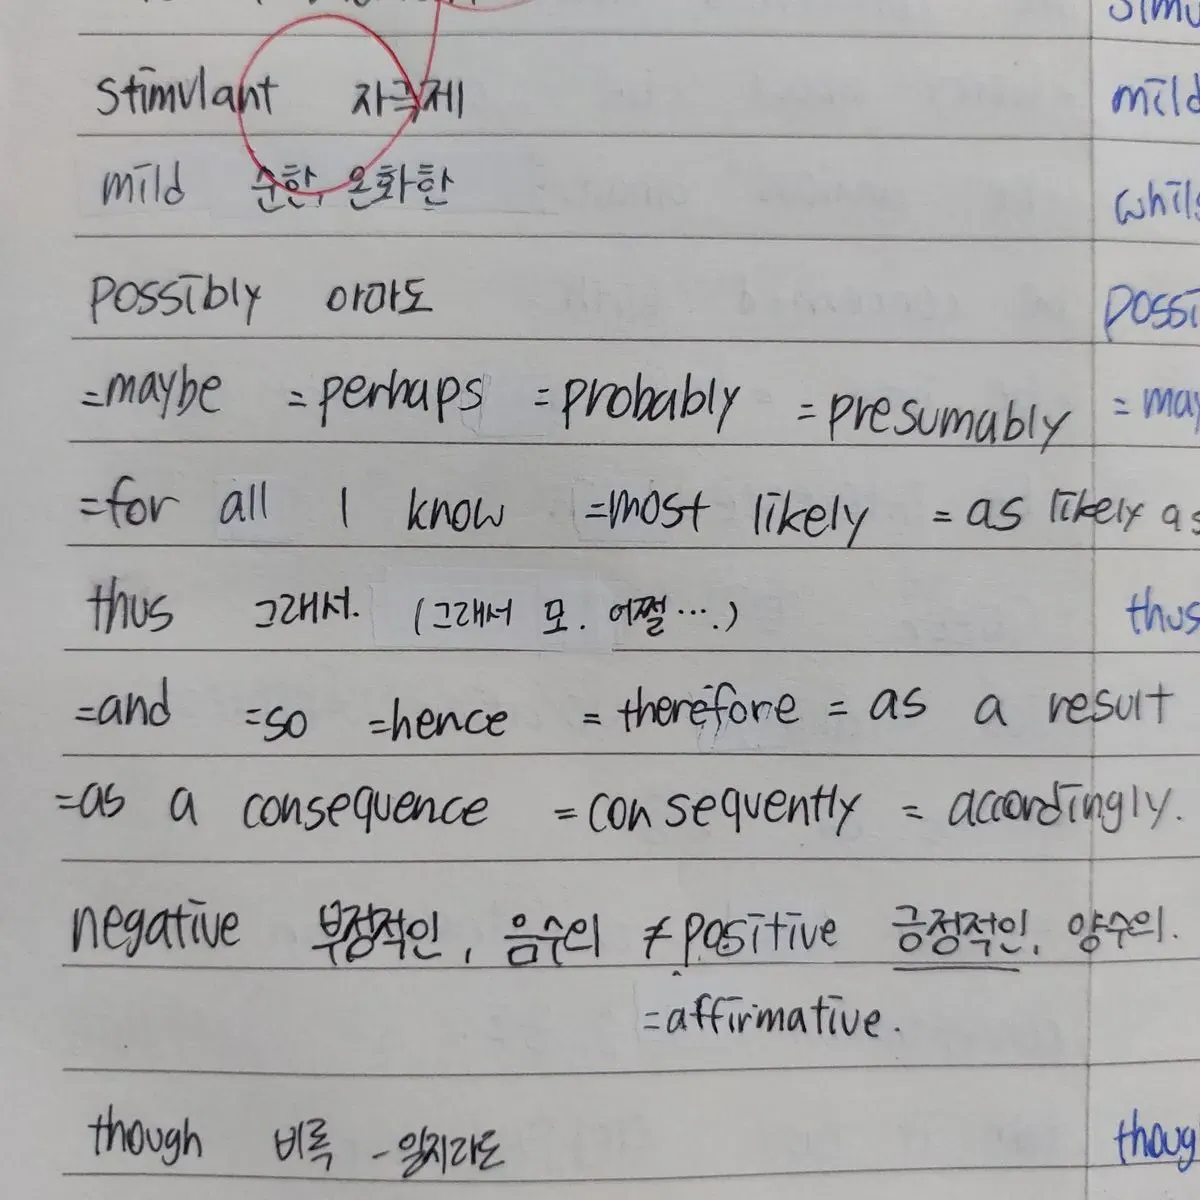 stimulant 자극제
mild 순한, 온화한
possibly 아마도
=maybe =perhaps =probably =presumably
=for all I know =most likely = as likely as
thus 그래서. (그래서 모. 어쩔....)
=and =so =hence = therefore = as a result
=as a consequence =consequently = accordingly.
negative 부정적인, 음수의 ≠ positive 긍정적인, 양수의.
=affirmative.
though 비록 -일지라도
mild
= may
thus